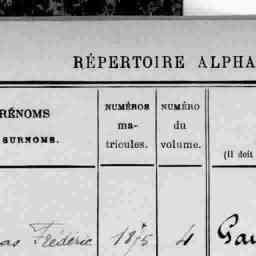 RÉPERTOIRE ALPHA
RÉNOMS
SURNOMS.
NUMÉROS
ma-
tricules.
NUMÉRO
du
volume.
(il doit
as Frédéric 1875 4 Gau